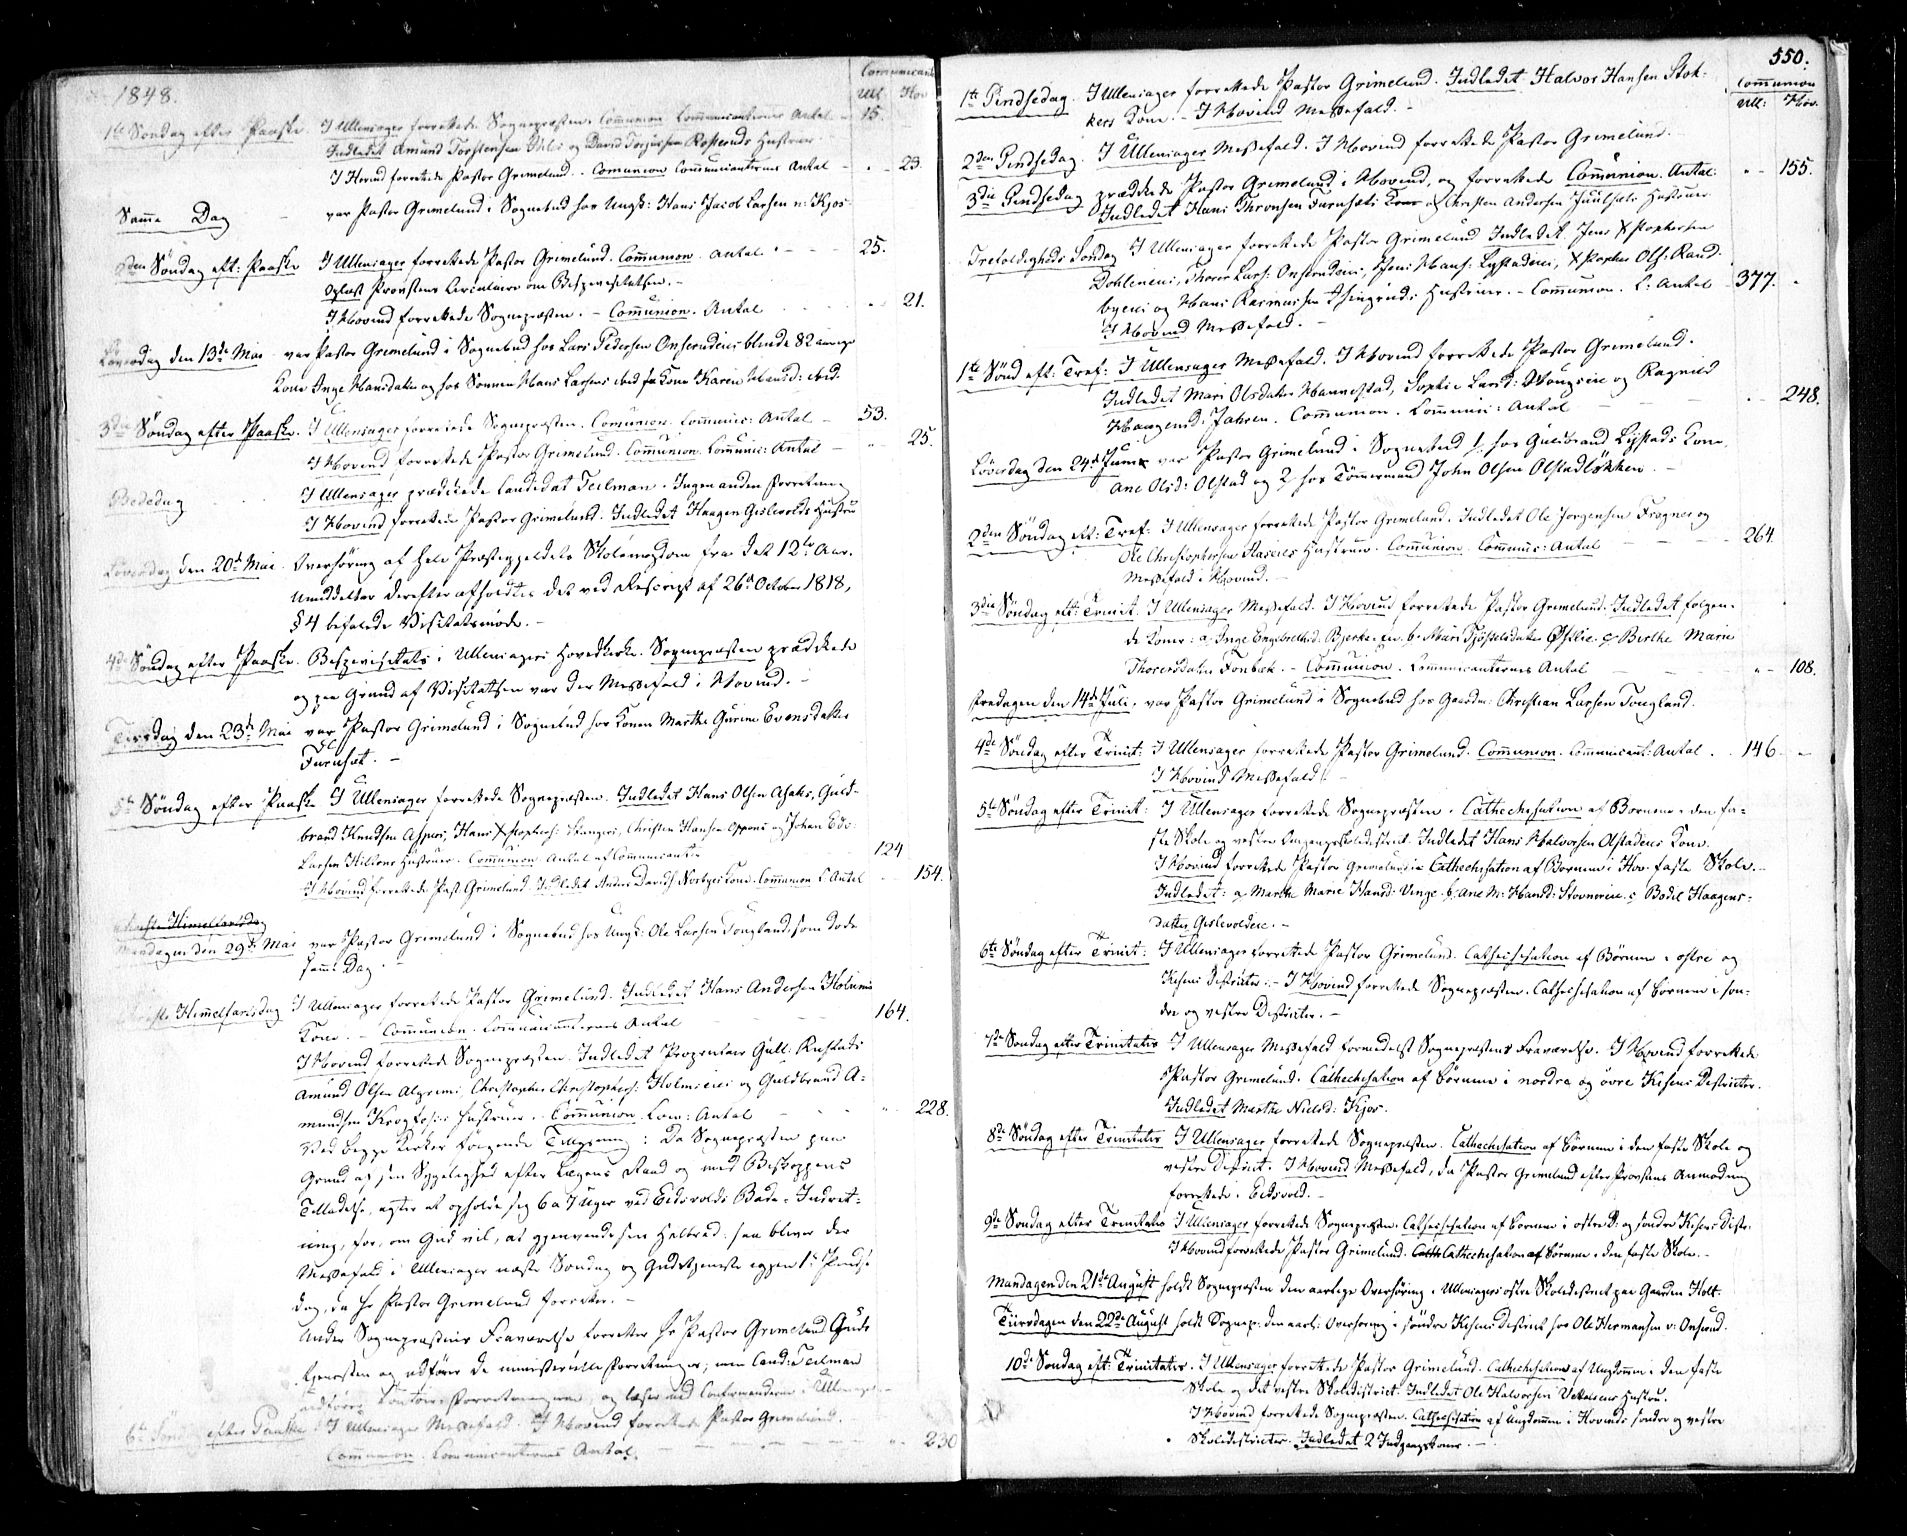 1848.
Communicant
Ull Hov
1ste Søndag efter Paaske. I Ullensager forrettede Sognepræsten. Communion Communicanternes Antal - 15.
Indledet Amund Torstensen og David Hustruer
I Hovind forrettede Pastor Grimelund. Communion Communicanternes Antal - " - 23.
Samme Dag - var Pastor Grimelund i Sognebud hos Ungk: Hans Jacob Larsen n: Kjos
2den Søndag eft: Paaske I Ullensager forrettede Pastor Grimelund. Communion. Antal. - 25.
Oplæst Provstens Circulaire om Bispevisitatsen. -
I Hovind forrettede Sognepræsten. - Communion. Antal 21.
Løverdag den 13de Mai var Pastor Grimelund i Sognebud hos Lars Pedersen Onsrudeies blinde 82 aarige
Kone Inge Hansdatter og hos Sønnen Hans Larsens Kone Karen Hansd: ibid.
3die Søndag efter Paaske. I Ullensager forrettede Sognepræsten. Communion. Communic: Antal - 53.
I Hovind forrettede Pastor Grimelund. Communion. Communic: Antal - " 25.
Bededag I Ullensager prædikede Candidat Teilman. Ingen anden Forretning
I Hovind forrettede Pastor Grimelund. Indledet Haagen Gislevolds Hustru
Løverdag den 20de Mai. Overhøring af hele Præstegjeldets Skoleungdom fra det 12te Aar.
Umiddelbar derefter afholdtes det ved Rescript af 26de October 1818,
§ 4 befalede Visitatsmøde. -
4de Søndag efter Paaske. Bispevisitats i Ullensagers Hovedkirke. Sognepræsten prædikede
og paa Grund af Visitatsen var der Messefald i Hovind. -
Tirsdag den 23de Mai var Pastor Grimelund i Sognebud hos Konen Marthe Gurine Evensdatter
Furuset. -
5te Søndag efter Paaske I Ullensager forrettede Sognepræsten. Indledet Hans Olsen Asaks, Guld-
brand Knudsen Aspers, Hans Xstophers: Stangers, Christen Hansen Oppens og Johan Edv:
Larsen Hiltons Hustruer. Communion Antal af Communicanter 124.
I Hovind forrettede Past: Grimelund. Indledet Anders Davids: Nordbyes Kone. Communion C: Antal - 154.
Christi Himmelfartsdag
Mandagen den 29de Mai var Pastor Grimelund i Sognebud hos Ungk: Ole Larsen Tougland, som døde
samme Dag. -
Christi Himmelfartsdag I Ullensager forrettede Pastor Grimelund. Indledet Hans Andersen Holums
Kone. - Communion. Communicanternes Antal 164.
I Hovind forrettede Sognepræsten. Indledet Proprietair Gull: Rustads
Amund Olsen Algrims, Christopher Christophers: Holmseies og Guldbrand A-
mundsen Krogfos's Hustruer. - Communion. Com: Antal - " 228.
Ved begge Kirker følgende Tillysning: Da Sognepræsten paa
Grund af sin Sygelighed efter Lægens Raad og med Biskoppens
Tilladelse, agter at opholde sig 6 a 7 Uger ved Eidsvolds Bade-Indret-
ning, for, om Gud vil, at gjenvinde sin Helbred: saa bliver der
Messefald i Ullensager næste Søndag og Gudstjeneste igjen 1ste Pindse-
dag, da Hr Pastor Grimelund forretter. -
Under Sognepræstens Fraværelse forretter Hr Pastor Grimelund Guds-
tjenesten og udfører de ministerielle Forretninger; men Cand: Teilman
udfører Contoirforretningerne, og læser med Confirmanderne i Ullensager. -
6te Søndag efter Paaske I Ullensager Messefald. I Hovind forrettede Pastor Grimelund.
Communion. Communicanternes Antal. 230
550.
Communion
Ull: Hov.
1ste Pindsedag. I Ullensager forrettede Pastor Grimelund. Indledet Halvor Hansen Stok-
kers Kone. - I Hovind Messefald. -
2den Pindsedag. I Ullensager Messefald. I Hovind forrettede Pastor Grimelund. -
3die Pindsedag prædikede Pastor Grimelund i Hovind, og forrettede Communion. Antal: " - 155.
Indledet Hans Thronsen Furusets Kone og Christen Andersen Juulsets Hustruer
Trefoldigheds Søndag I Ullensager forrettede Pastor Grimelund Indledet Jens Xstophersen
Dohleneies, Thorer Lars: Onsrudeies, Jens Hans: Lystadeies, Xstopher Ols: Rand-
byeies og Hans Rasmussen Hustruer. - Communion. C: Antal - 377. -
I Hovind Messefald. -
1ste Sønd eft: Tref: I Ullensager Messefald. I Hovind forrettede Pastor Grimelund.
Indledet Mari Olsdatter Hannestad, Sophie Larsd: Hougseie og Ragnild
Haagensd. Jahren. Communion. Communic: Antal - " - 248.
Løverdag den 24de Juni var Pastor Grimelund i Sognebud 1, hos Guldbrand Lystads Kone
Ane Olsd: Olstad og 2 hos Tømmermand John Olsen Olstadløkken. -
2den Søndag eft: Tref: I Ullensager forrettede Pastor Grimelund. Indledet Ole Jørgensen Frogner og
Ole Christophersen Hustruer. Communion. Communic: Antal - 264.
Messefald i Hovind. -
3die Søndag eft: Trinit. I Ullensager Messefald. I Hovind forrettede Pastor Grimelund. Indledet følgen-
de Koner: a, Inge Engebrethsd. Bjerke- eie, b, Mari Østlie. c, Berthe Marie
Thoresdatter Fonbek. - Communion. Communicanternes Antal - " - 108.
Fredagen den 14de Juli, var Pastor Grimelund i Sognebud hos Gaardm: Christian Larsen Tougland.
4de Søndag efter Trinit: I Ullensager forrettede Pastor Grimelund. Communion. Communicant: Antal . . 146 -
I Hovind Messefald. -
5te Søndag efter Trinit: I Ullensager forrettede Sognepræsten. Cathechisation af Børnene i den fa-
ste Skole og vestre Omgangsskoledistrict. Indledet Hans Halvorsen Olstadeies Kone.
I Hovind forrettede Pastor Grimelund. Cathechisation af Børnene i Hov: faste Skole. -
Indledet: a, Marthe Marie Hansd: Unge. b, Ane M: Hansd: c, Bodil Haagens-
datter Gislevoldeie. -
6te Søndag efter Trinit: I Ullensager forrettede Pastor Grimelund. Cathechisation af Børnene i østre og
Kisens Districter. - I Hovind forrettede Sognepræsten. Cathechisation af Børnene i søn-
dre og vestre Districter. -
7de Søndag efter Trinitatis I Ullensager Messefald formedelst Sognepræstens Fraværelse. I Hovind forrettede
Pastor Grimelund. Cathechisation af Børnene i nordre og øvre Kisens Districter.
Indledet Marthe Nielsd: Kjos.
8de Søndag efter Trinitatis I Ullensager forrettede Sognepræsten. Cathechisation af Børnene i den faste Skole og
vestre District. I Hovind Messefald, da Pastor Grimelund efter Provstens Anmodning
forrettede i Eidsvold. -
9de Søndag efter Trinitatis I Ullensager forrettede Sognepræsten. Cathechisation af Børnene i østre D: og søndre Kisens Distr.
I Hovind forrettede Pastor Grimelund. Cathechisation af Børnene i den faste Skole. -
Mandagen den 21de August holdt Sognepræsten den aarlige Overhøring i Ullensagers østre Skoledistrict paa Gaarden Holt.
Tiirsdagen den 22de August holdt Sognepr: den aarl: Overhøring i søndre Kisens District hos Ole Hermansen v: Onsrud.
10de Søndag eft: Trinitatis. I Ullensager forrettede Pastor Grimelund. Cathechisation af Ungdommen i den faste
Skole og det vestre Skoledistrict. Indledet Ole Halvorsen Hustru.
I Hovind forrettede Sognepræsten. Cathechisation af Ungdommen i Hovinds søndre og vestre
Skoledistricter. Indledet 2 Indgangskoner. -